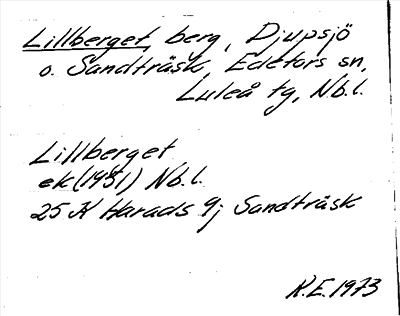 Lillberget, berg, Djupsjö
o. Sandträsk, Edefors sn,
Luleå tg, Nb.l.
Lillberget
ek (1951) Nb.l.
25 K Harads 9j Sandträsk
R.E. 1973